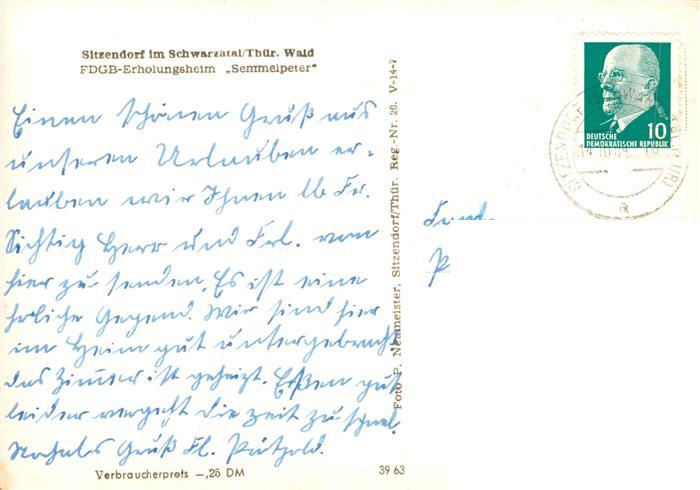 Sitzendorf im Schwarzatal/Thür. Wald
FDGB-Erholungsheim „Semmelpeter"
Einen schönen Gruß aus
unseren Urlauben er-
lauben wir Ihnen lb Fr.
Sichtig Herr und Frl. von
hier zu senden. Es ist eine
hrliche Gegend. Wir sind hier
im Heim gut untergebracht
das Zimmer ist geheizt. Eßen gut
leider vergeht die Zeit zu schnel.
Nochals Gruß Fl. Pätzold.
Verbraucherpreis —,25 DM
39 63
Foto P. Neumeister, Sitzendorf/Thür. Reg.-Nr. 20. V-14-7
10
DEUTSCHE
DEMOKRATISCHE REPUBLIK
SITZENDORF
a